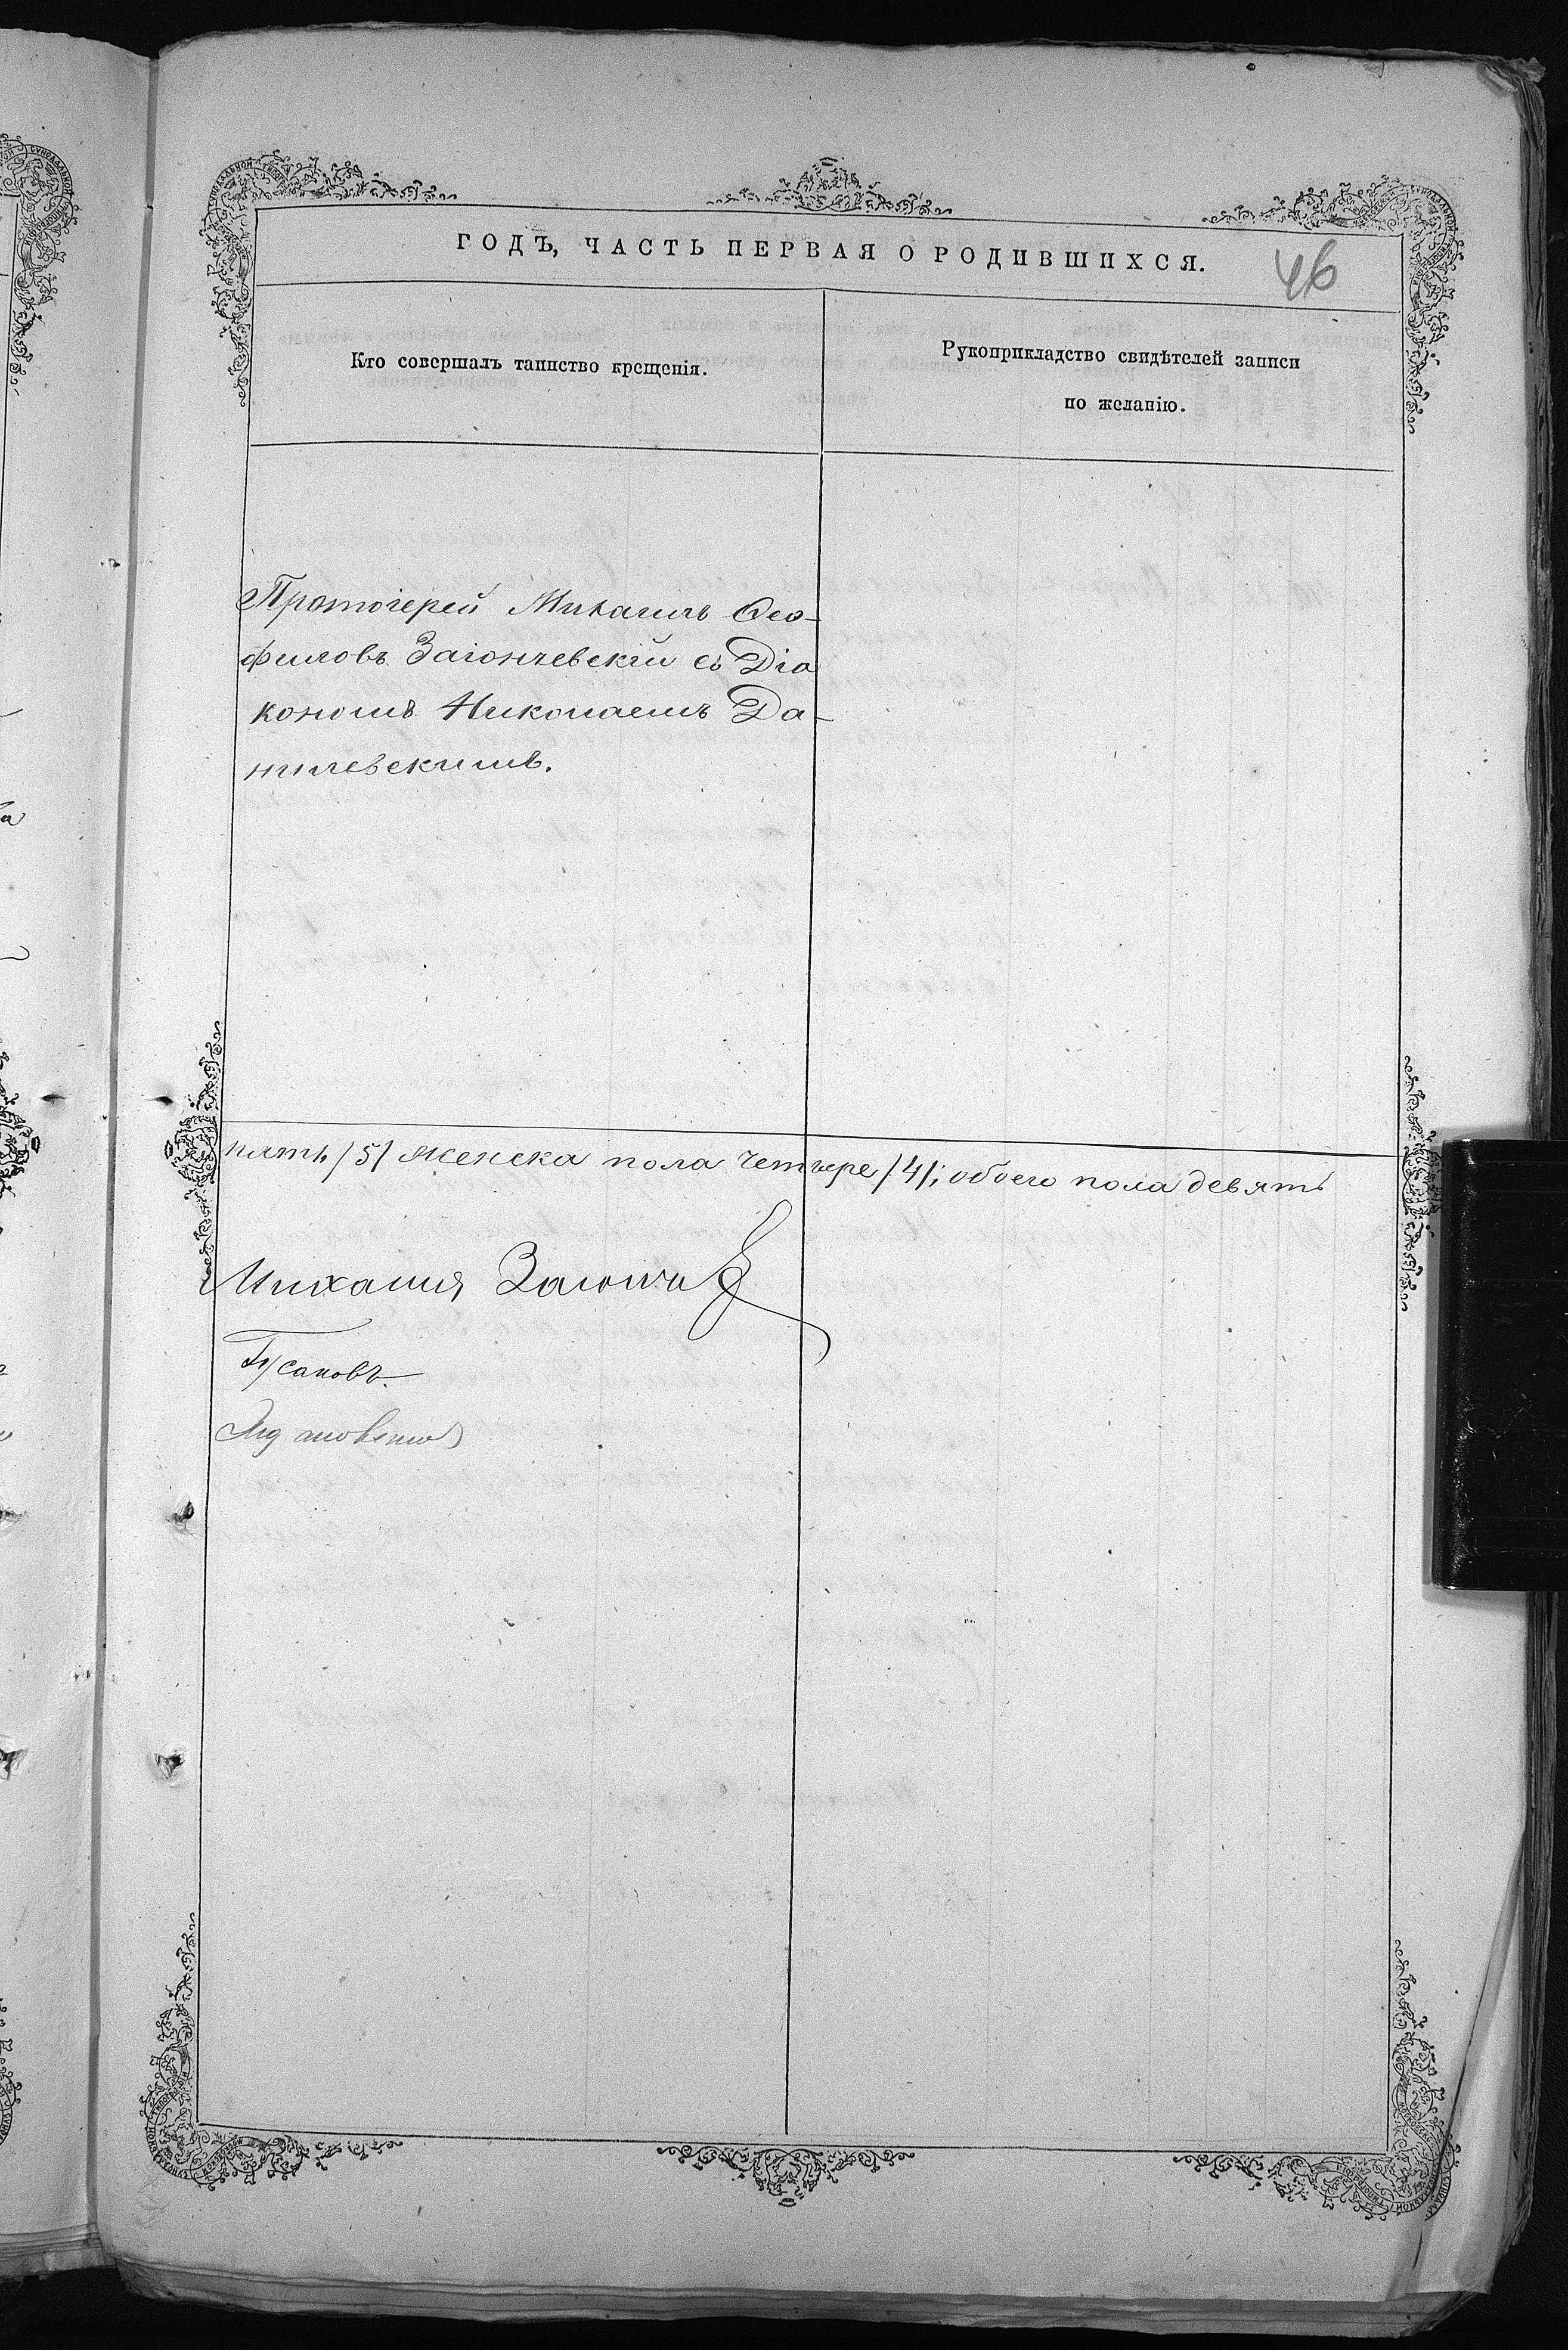 ГОДЪ, ЧАСТЬ ПЕРВАЯ О РОДИВШИХСЯ.
46
Кто совершалъ таинство крещенія.
Рукоприкладство свидѣтелей записи
по желанію.
Протоіерей Михаилъ Ѳео-
филовъ Заіончевскій съ Діа
кономъ Николаемъ Да-
нилевскимъ.
пять /5/ женска пола четыре /4/; обоего пола девять
Михаилъ
Гусаковъ.